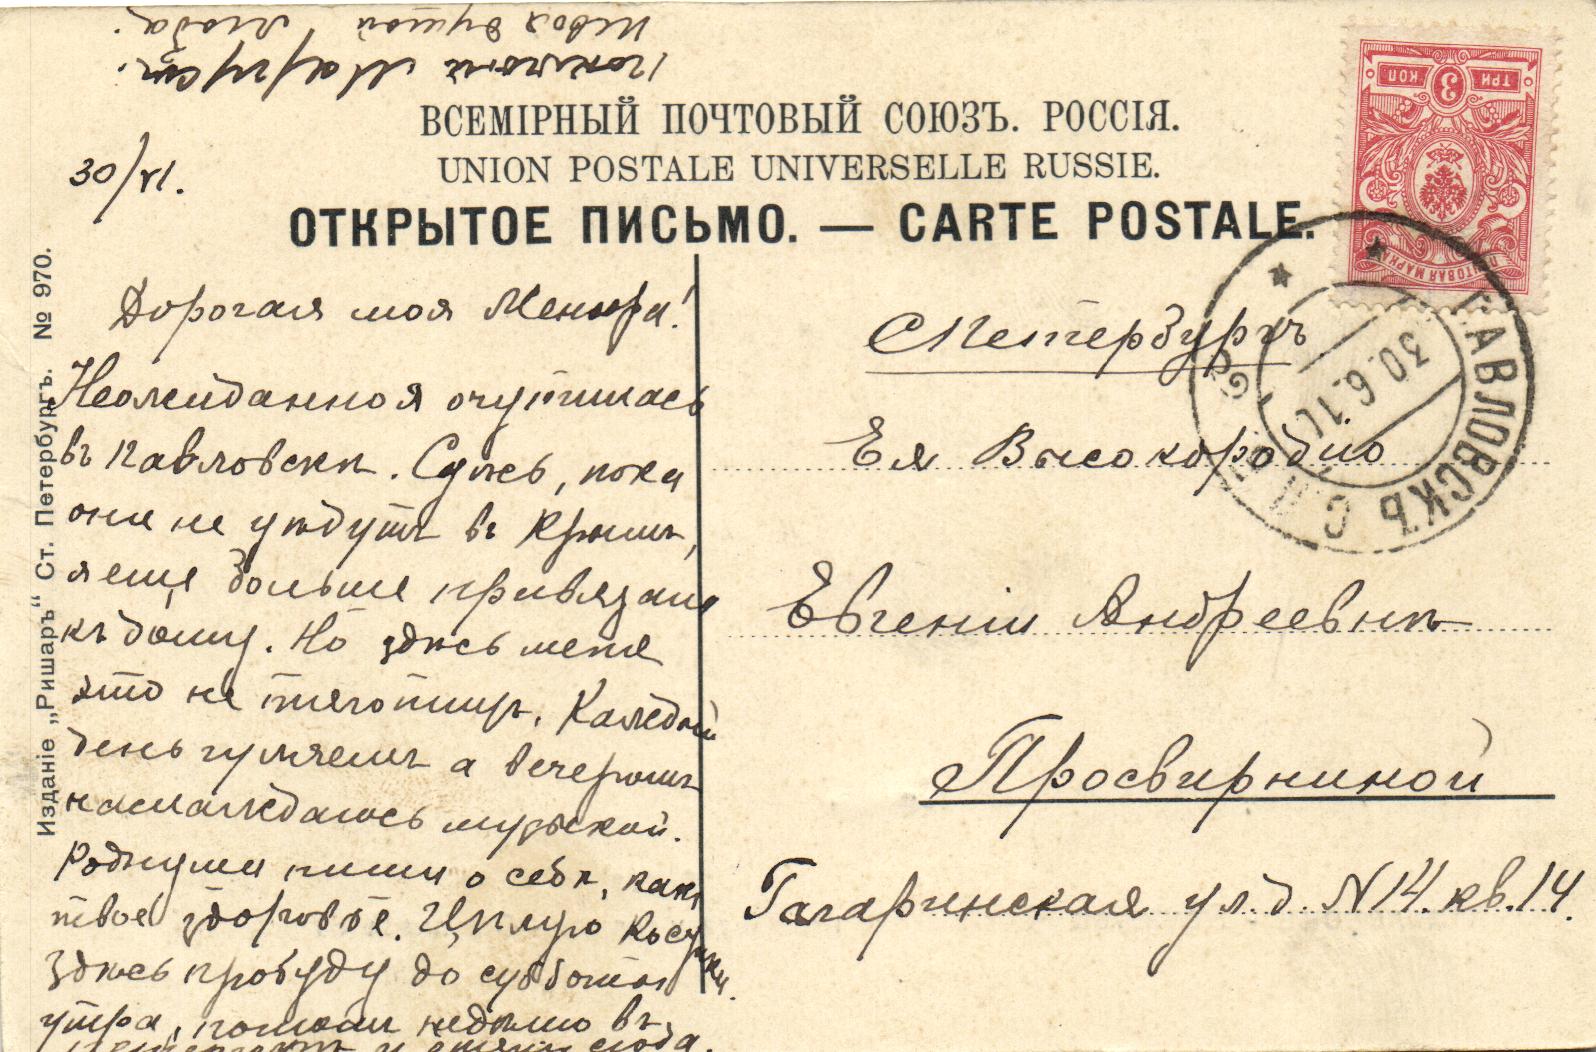 ВСЕМІРНЫЙ ПОЧТОВЫЙ СОЮЗЪ. РОССІЯ.
UNION POSTALE UNIVERSELLE RUSSIE.
ОТКРЫТОЕ ПИСЬМО. — CARTE POSTALE.
30/VI.
Дорогая моя Менюра!
Неожиданно я очутилась
въ Павловскѣ. Здѣсь, пока
они не уѣдутъ въ Крымъ,
я еще больше привязана
къ дому. Но здѣсь меня
это не тяготитъ. Каждый
день гуляемъ а вечеромъ
наслаждаюсь музыкой.
Роднуля пиши о себѣ, какъ
твое здоровье. Цѣлую
Здѣсь пробуду до субботы
утра, потомъ недѣлю въ
и опять сюда.
Твоя душой Люба.
С Петербургъ
Ея Высокородію
Евгеніи Андреевнѣ
Просвирниной
Гагаринская ул. д. N 14. кв. 14.
Изданіе „Ришаръ“ Ст. Петербургъ. № 970.
ТРИ 3 КОП
ПОЧТОВАЯ МАРКА
ПАВЛОВСКЪ С.П.
30.6.10